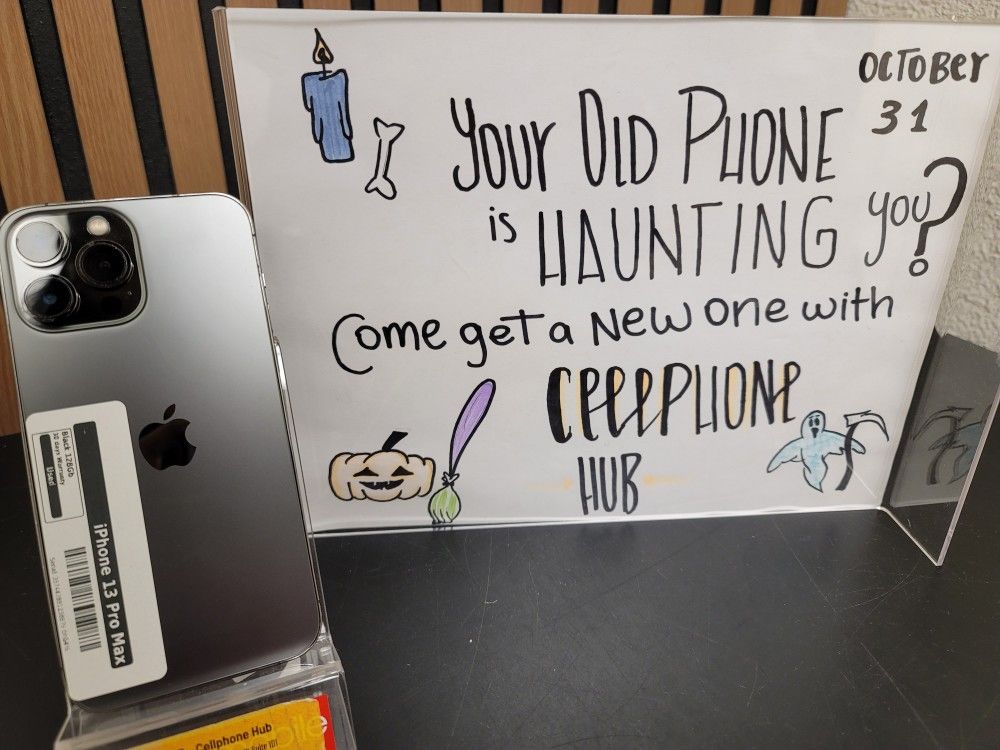 OCTOBER
31
YOUR OLD PHONE
is HAUNTING YOU?
Come get a New one with
CELLPHONE
HUB
Black 128Gb
30 days Warranty
Used
iPhone 13 Pro Max
Cellphone Hub
Suite 101